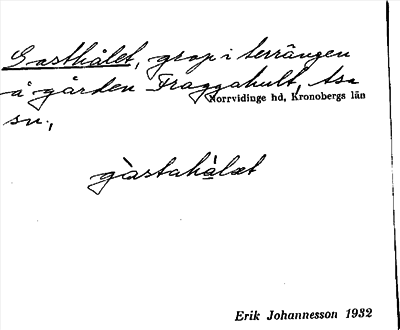 Gasthålet, grop i terrängen
å gården Fraggahult, tsa
Norrvidinge hd, Kronobergs län
sn.,
gàstahàlæt
Erik Johannesson 1932